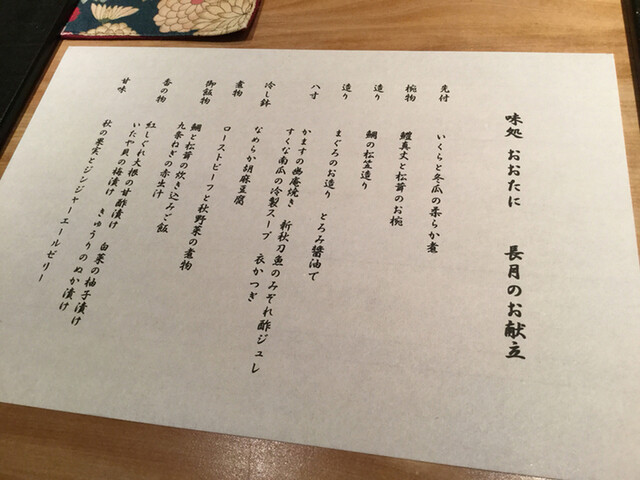 味処 おおたに 長月のお献立
先付 いくらと冬瓜の柔らか煮
椀物 鱧真丈と松茸のお椀
造り 鯛の松笠造り
造り まぐろのお造り とろみ醤油で
八寸 かますの幽庵焼き 新秋刀魚のみぞれ酢ジュレ
すくな南瓜の冷製スープ 衣かつぎ
冷し鉢 なめらか胡麻豆腐
煮物 ローストビーフと秋野菜の煮物
御飯物 鯛と松茸の炊き込みご飯
九条ねぎの赤出汁
香の物 紅しぐれ大根の甘酢漬け 白菜の柚子漬け
いたや貝の梅漬け きゅうりのぬか漬け
甘味 秋の果実とジンジャーエールゼリー